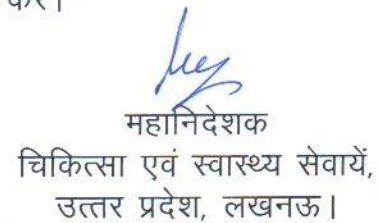 करें।
महानिदेशक
चिकित्सा एवं स्वास्थ्य सेवायें,
उत्तर प्रदेश, लखनऊ।